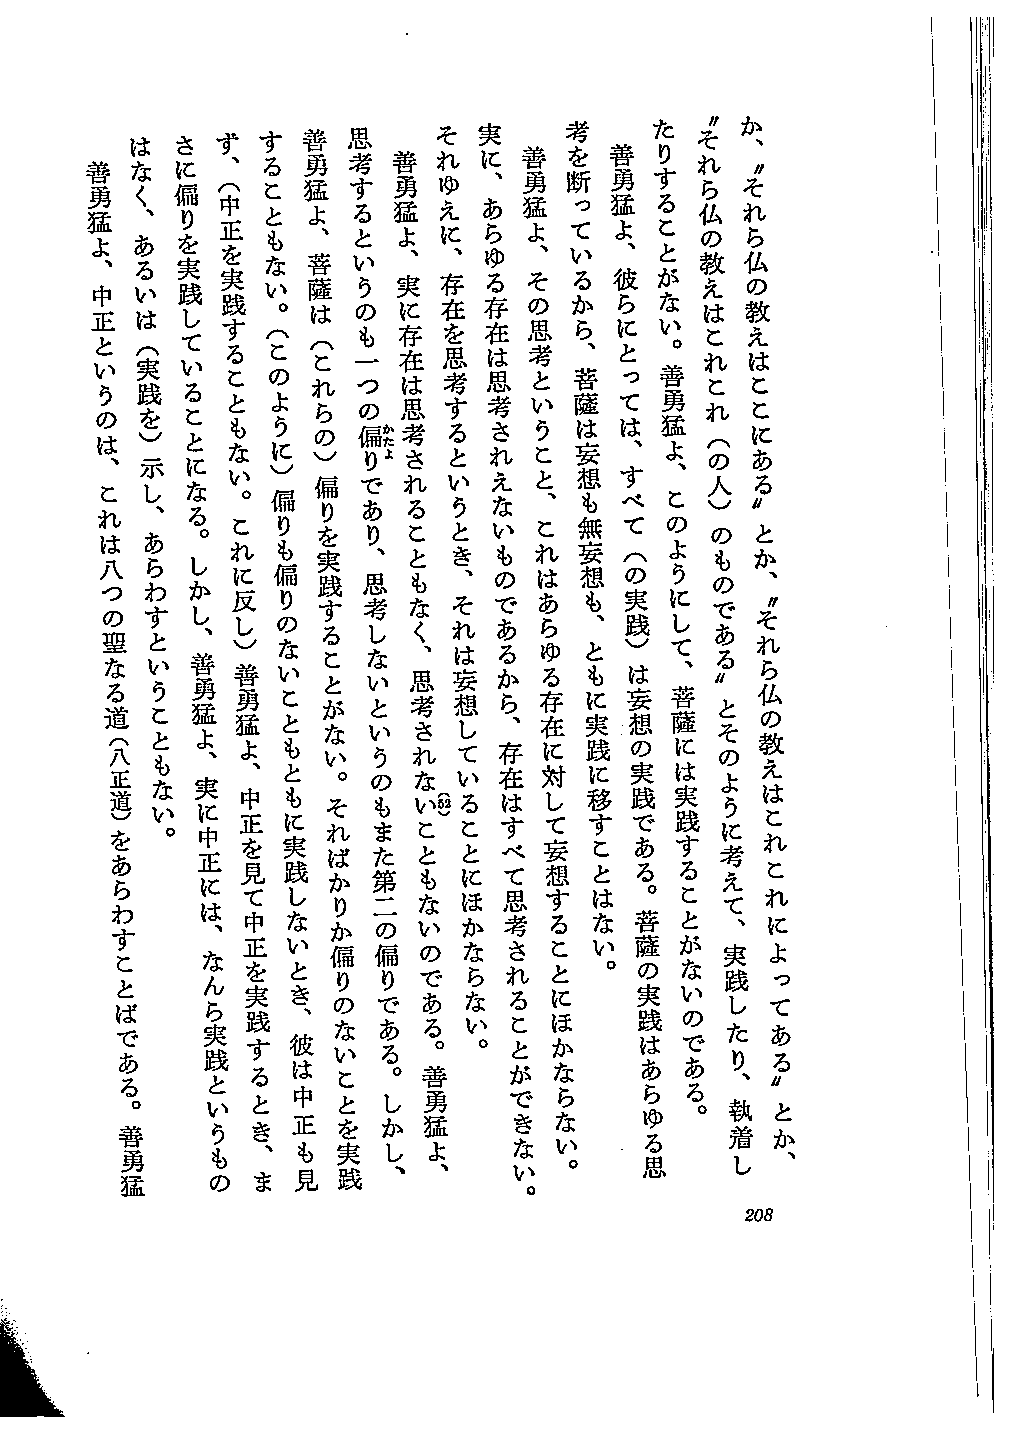 か、〝それら仏の教えはここにある〟とか、〝それら仏の教えはこれこれによってある〟とか、
〝それら仏の教えはこれこれ（の人）のものである〟とそのように考えて、実践したり、執着し
たりすることがない。善勇猛よ、このようにして、菩薩には実践することがないのである。
善勇猛よ、彼らにとっては、すべて（の実践）は妄想の実践である。菩薩の実践はあらゆる思
考を断っているから、菩薩は妄想も無妄想も、ともに実践に移すことはない。
善勇猛よ、その思考ということ、これはあらゆる存在に対して妄想することにほかならない。
実に、あらゆる存在は思考されえないものであるから、存在はすべて思考されることができない。
それゆえに、存在を思考するというとき、それは妄想していることにほかならない。
善勇猛よ、実に存在は思考されることもなく、思考されないこともないのである。善勇猛よ、(52)
思考するというのも一つの偏かたよりであり、思考しないというのもまた第二の偏りである。しかし、
善勇猛よ、菩薩は（これらの）偏りを実践することがない。そればかりか偏りのないことを実践
することもない。（このように）偏りも偏りのないこともともに実践しないとき、彼は中正も見
ず、（中正を実践することもない。これに反し）善勇猛よ、中正を見て中正を実践するとき、ま
さに偏りを実践していることになる。しかし、善勇猛よ、実に中正には、なんら実践というもの
はなく、あるいは（実践を）示し、あらわすということもない。
善勇猛よ、中正というのは、これは八つの聖なる道（八正道）をあらわすことばである。善勇猛
208